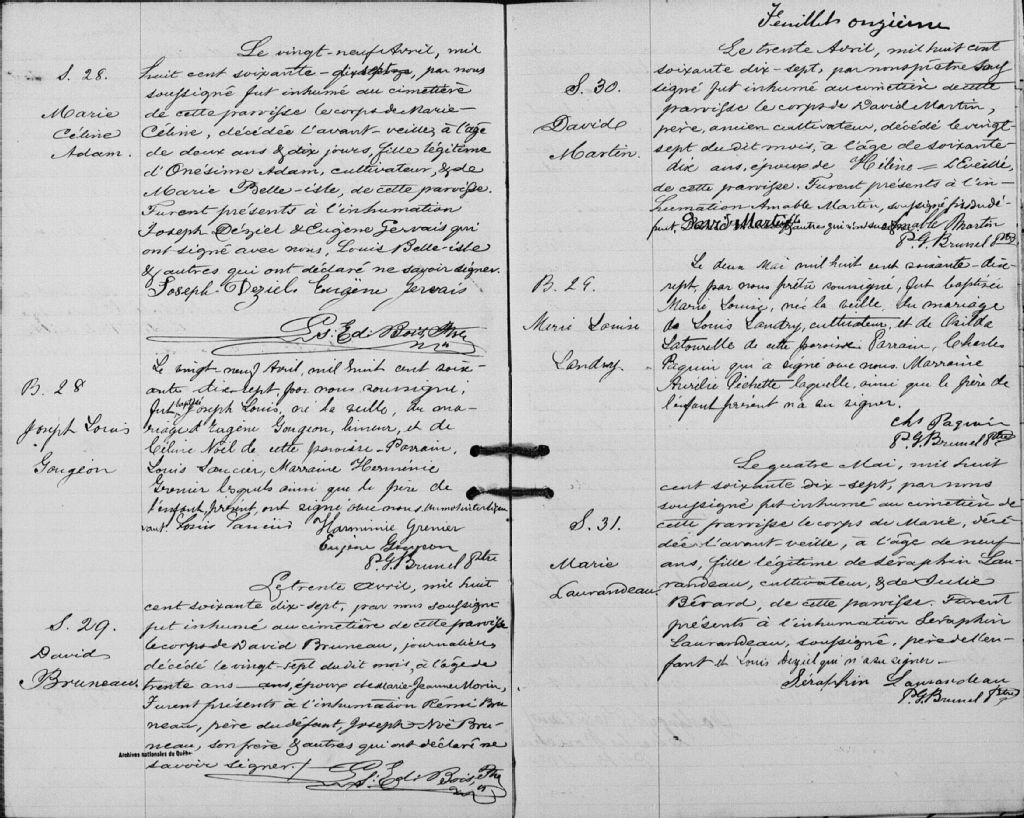 S. 28.
Marie
Céline
Adam.
Le vingt-neuf Avril, mil
huit cent soixante-dix-sept, par nous
soussigné fut inhumé au cimetière
de cette paroisse le corps de Marie-
Céline, décédée l'avant-veille, à l'âge
de deux ans & dix jours, fille légitime
d'Onésime Adam, cultivateur, & de
Marie Belle-isle, de cette paroisse.
Furent présents à l'inhumation
Joseph Déziel & Eugène Gervais qui
ont signé avec nous, Louis Belle-isle
& autres qui ont déclaré ne savoir signer.
Joseph Deziel Eugène Gervais
Ls. Ed. Bois Ptre
B. 28
Joseph Louis
Gougeon
Le vingt neuf Avril, mil huit cent soix-
ante dix-sept, par nous soussigné,
fut baptisé Joseph Louis, né la veille, du ma-
riage d'Eugène Gougeon, et de
Céline Noël de cette paroisse - Parrain,
Louis Saucier, Marraine Herménie
Grenier lesquels ainsi que le père de
l'enfant, présent, ont signé avec nous.
Louis Harminie Grenier
Eugène Gougeon
P. G. Brunel Ptre
S. 29.
David
Bruneau
Le trente Avril, mil huit
cent soixante dix-sept, par nous soussigné
fut inhumé au cimetière de cette paroisse
le corps de David Bruneau, journalier,
décédé le vingt-sept du dit mois, à l'âge de
trente ans, époux de Marie-Jeanne Morin,
Furent présents à l'inhumation Remi Bru-
neau, père du défunt, Joseph-Noë Bru-
neau, son frère & autres qui ont déclaré ne
savoir signer.
Ls. Ed. Bois, Ptre
Archives nationales du Québec
Feuillet onzième
S. 30.
David
Martin.
Le trente Avril, mil huit cent
soixante dix-sept, par nous prêtre sous-
signé fut inhumé au cimetière de cette
paroisse le corps de David Martin,
père, ancien cultivateur, décédé le vingt-
sept du dit mois, à l'âge de soixante-
dix ans, époux de Hélène L'Eveillé,
de cette paroisse. Furent présents à l'in-
humation Amable Martin, soussigné fils du dé-
funt, David Martin & autres qui Amable Martin
P. G. Brunel Ptre
B. 29.
Marie Louise
Landry.
Le deux Mai mil huit cent soixante-dix-
sept, par nous prêtre soussigné, fut baptisée
Marie Louise, née la veille du mariage
de Louis Landry, cultivateur, et de Exilda
Latourelle de cette paroisse Parrain, Charles
Paquin qui a signé avec nous. Marraine
Aurélie Pichette laquelle, ainsi que le père de
l'enfant présent n'a su signer.
Chs Paquin
P. G. Brunel Ptre
S. 31.
Marie
Laurandeau
Le quatre Mai, mil huit
cent soixante dix-sept, par nous
soussigné fut inhumé au cimetière de
cette paroisse le corps de Marie, décé-
dée l'avant-veille, à l'âge de neuf
ans, fille légitime de Séraphin Lau-
randeau, cultivateur, & de Julie
Bérard, de cette paroisse. Furent
présents à l'inhumation Séraphin
Laurandeau, soussigné, père de l'en-
fant et Louis Deziel qui n'a su signer -
Séraphin Laurandeau
P. G. Brunel Ptre